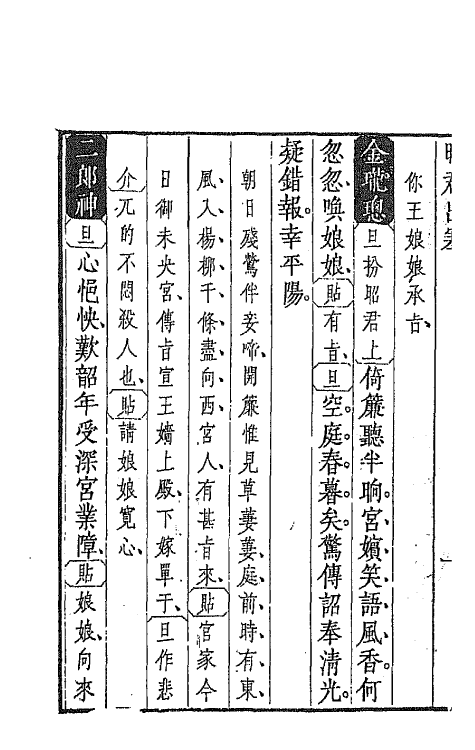 你王娘娘承㫖、
金瓏璁 旦扮昭君上 倚簾聽半晌。宮嬪笑語風香。何
忽忽喚娘娘、貼 有㫖、旦 空。庭。春。暮。矣。驚傳詔奉清光。
疑錯報。幸平陽。
朝日殘鶯伴妾啼、開簾惟見草萋萋、庭前、時、有、東、
風、入楊柳千條盡向西、宮人、有甚㫖來、貼 官家今
日御未央宮、傳㫖宣王嬙上殿、下嫁單于、旦作悲
介 兀的不悶殺人也、貼 請娘娘寬心、
二郎神 旦 心悒怏、歎韶年受深宮業障、貼 娘娘、向來